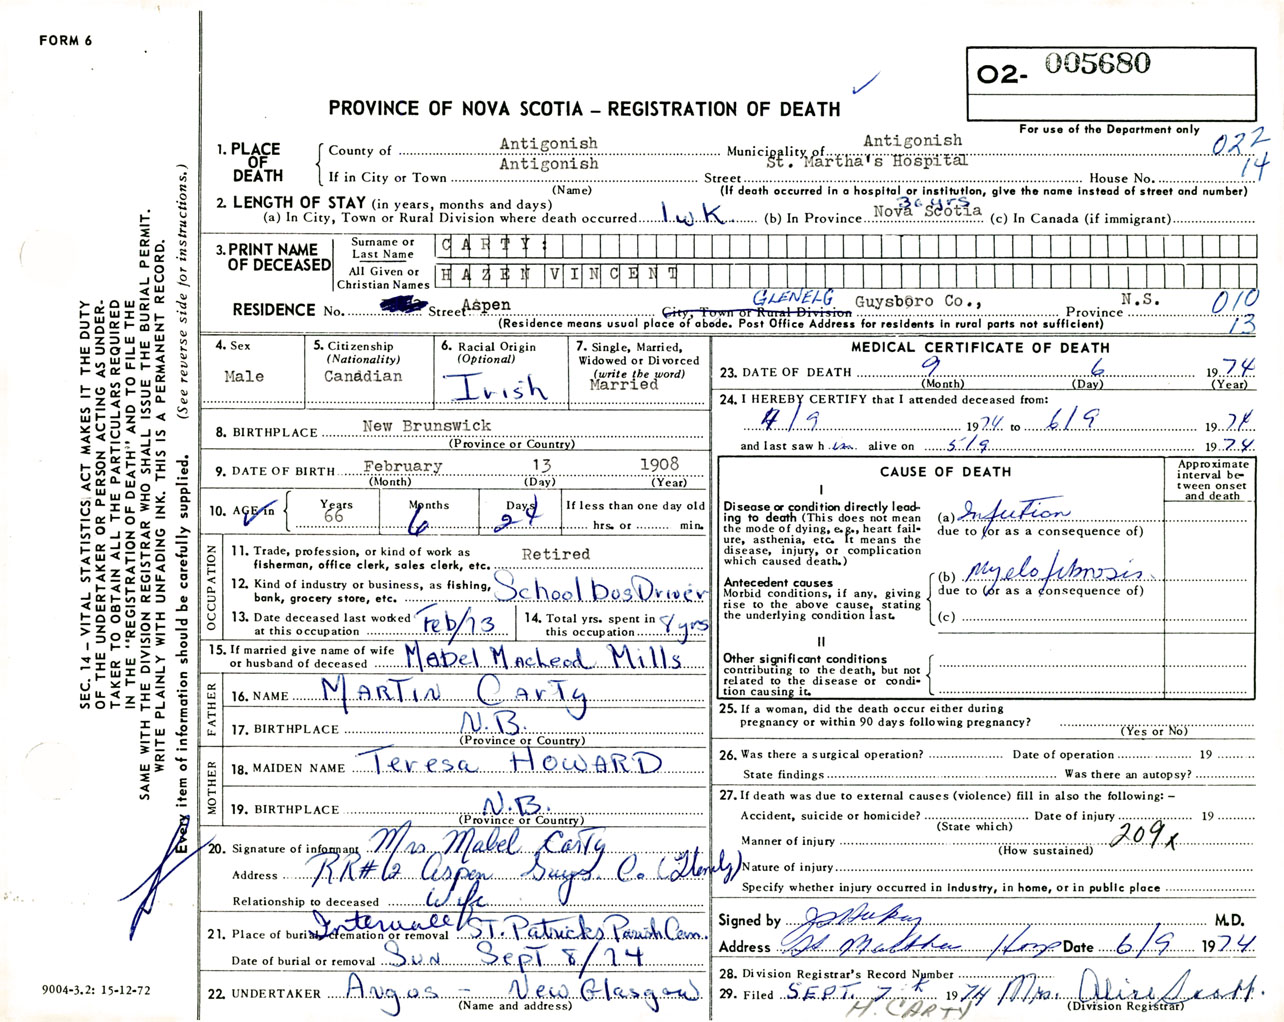 FORM 6
O2- 005680
PROVINCE OF NOVA SCOTIA – REGISTRATION OF DEATH
For use of the Department only
022
14
1. PLACE OF DEATH
County of Antigonish Municipality of Antigonish
If in City or Town Antigonish Street St. Martha's Hospital House No.
(Name) (If death occurred in a hospital or institution, give the name instead of street and number)
2. LENGTH OF STAY (in years, months and days)
36 yrs
(a) In City, Town or Rural Division where death occurred 1 wk. (b) In Province Nova Scotia (c) In Canada (if immigrant)
3. PRINT NAME OF DECEASED
Surname or Last Name CARTY:
All Given or Christian Names HAZEN VINCENT
RESIDENCE No. Street Aspen GLENELG City, Town or Rural Division Guysboro Co., Province N.S. 010
(Residence means usual place of abode. Post Office Address for residents in rural parts not sufficient) 13
4. Sex
Male
5. Citizenship
(Nationality)
Canadian
6. Racial Origin
(Optional)
Irish
7. Single, Married, Widowed or Divorced
(write the word)
Married
8. BIRTHPLACE New Brunswick
(Province or Country)
9. DATE OF BIRTH February 13 1908
(Month) (Day) (Year)
10. AGE in Years Months Days If less than one day old
66 6 24 hrs. or min.
OCCUPATION
11. Trade, profession, or kind of work as fisherman, office clerk, sales clerk, etc. Retired
12. Kind of industry or business, as fishing, bank, grocery store, etc. School bus Driver
13. Date deceased last worked at this occupation Feb/73
14. Total yrs. spent in this occupation 8 yrs
15. If married give name of wife or husband of deceased Mabel MacLeod Mills
FATHER
16. NAME Martin Carty
17. BIRTHPLACE N.B.
(Province or Country)
MOTHER
18. MAIDEN NAME Teresa HOWARD
19. BIRTHPLACE N.B.
(Province or Country)
20. Signature of informant Mrs Mabel Carty
Address RR#2 Aspen Guys. Co.
Relationship to deceased Wife
21. Place of burial, cremation or removal St. Patricks Parish Cem.
Date of burial or removal Sun Sept 8/74
22. UNDERTAKER Angus – New Glasgow
(Name and address)
MEDICAL CERTIFICATE OF DEATH
23. DATE OF DEATH 9 6 1974
(Month) (Day) (Year)
24. I HEREBY CERTIFY that I attended deceased from:
4/9 1974 to 6/9 1974
and last saw h im alive on 5/9 1974
CAUSE OF DEATH
Approximate interval between onset and death
I
Disease or condition directly leading to death (This does not mean the mode of dying, e.g., heart failure, asthenia, etc. It means the disease, injury, or complication which caused death.)
(a) Infection
due to (or as a consequence of)
Antecedent causes
Morbid conditions, if any, giving rise to the above cause, stating the underlying condition last.
(b) Myelofibrosis
due to (or as a consequence of)
(c)
II
Other significant conditions
contributing to the death, but not related to the disease or condition causing it.
25. If a woman, did the death occur either during pregnancy or within 90 days following pregnancy?
(Yes or No)
26. Was there a surgical operation? Date of operation 19
State findings Was there an autopsy?
27. If death was due to external causes (violence) fill in also the following: –
Accident, suicide or homicide? Date of injury 19
(State which)
Manner of injury 209x
(How sustained)
Nature of injury
Specify whether injury occurred in Industry, in home, or in public place
Signed by M.D.
Address St Marthas Hosp Date 6/9 1974
28. Division Registrar's Record Number
29. Filed SEPT. 7th 1974 Mrs. Alice Scott.
(Division Registrar)
H. CARTY
SEC. 14 – VITAL STATISTICS ACT MAKES IT THE DUTY
OF THE UNDERTAKER OR PERSON ACTING AS UNDER-
TAKER TO OBTAIN ALL THE PARTICULARS REQUIRED
IN THE "REGISTRATION OF DEATH" AND TO FILE THE
SAME WITH THE DIVISION REGISTRAR WHO SHALL ISSUE THE BURIAL PERMIT.
WRITE PLAINLY WITH UNFADING INK. THIS IS A PERMANENT RECORD.
Every item of information should be carefully supplied. (See reverse side for instructions.)
9004-3.2: 15-12-72